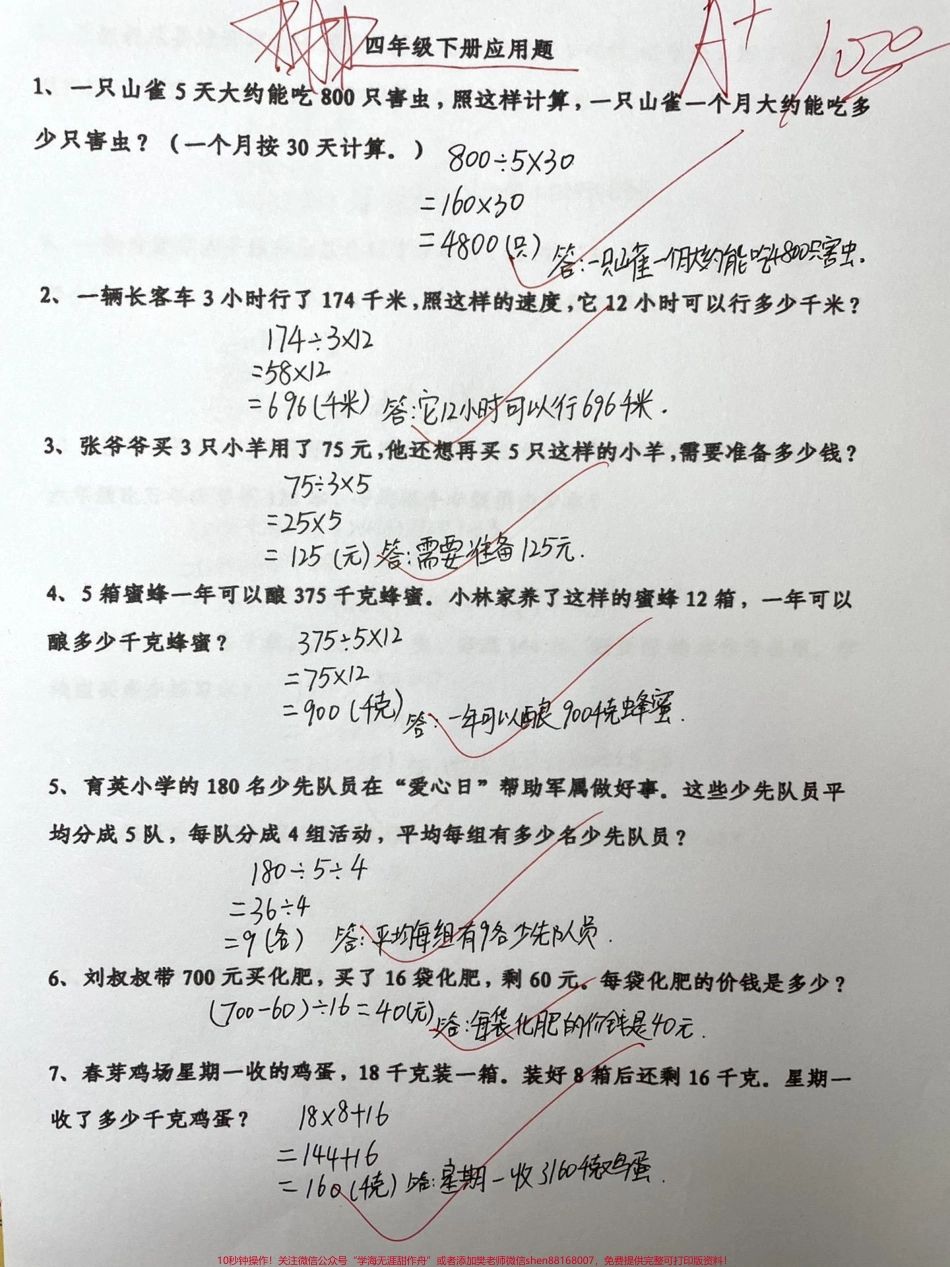 四年级下册应用题
A+
1、一只山雀 5 天大约能吃 800 只害虫，照这样计算，一只山雀一个月大约能吃多
少只害虫？（一个月按 30 天计算。）
800÷5×30
=160×30
=4800(只) 答:一只山雀一个月大约能吃4800只害虫。
2、一辆长客车 3 小时行了 174 千米,照这样的速度,它 12 小时可以行多少千米？
174÷3×12
=58×12
=696(千米) 答:它12小时可以行696千米.
3、张爷爷买 3 只小羊用了 75 元,他还想再买 5 只这样的小羊,需要准备多少钱？
75÷3×5
=25×5
=125(元) 答:需要准备125元.
4、5 箱蜜蜂一年可以酿 375 千克蜂蜜。小林家养了这样的蜜蜂 12 箱，一年可以
酿多少千克蜂蜜？ 375÷5×12
=75×12
=900(千克) 答:一年可以酿900千克蜂蜜.
5、育英小学的 180 名少先队员在“爱心日”帮助军属做好事。这些少先队员平
均分成 5 队，每队分成 4 组活动，平均每组有多少名少先队员？
180÷5÷4
=36÷4
=9(名) 答:平均每组有9名少先队员.
6、刘叔叔带 700 元买化肥，买了 16 袋化肥，剩 60 元。每袋化肥的价钱是多少？
(700-60)÷16=40(元) 答:每袋化肥的价钱是40元.
7、春芽鸡场星期一收的鸡蛋，18 千克装一箱。装好 8 箱后还剩 16 千克。星期一
收了多少千克鸡蛋？ 18×8+16
=144+16
=160(千克) 答:星期一收了160千克鸡蛋.
10秒钟操作！关注微信公众号“学海无涯甜作舟”或者添加樊老师微信shen88168007，免费提供完整可打印版资料！